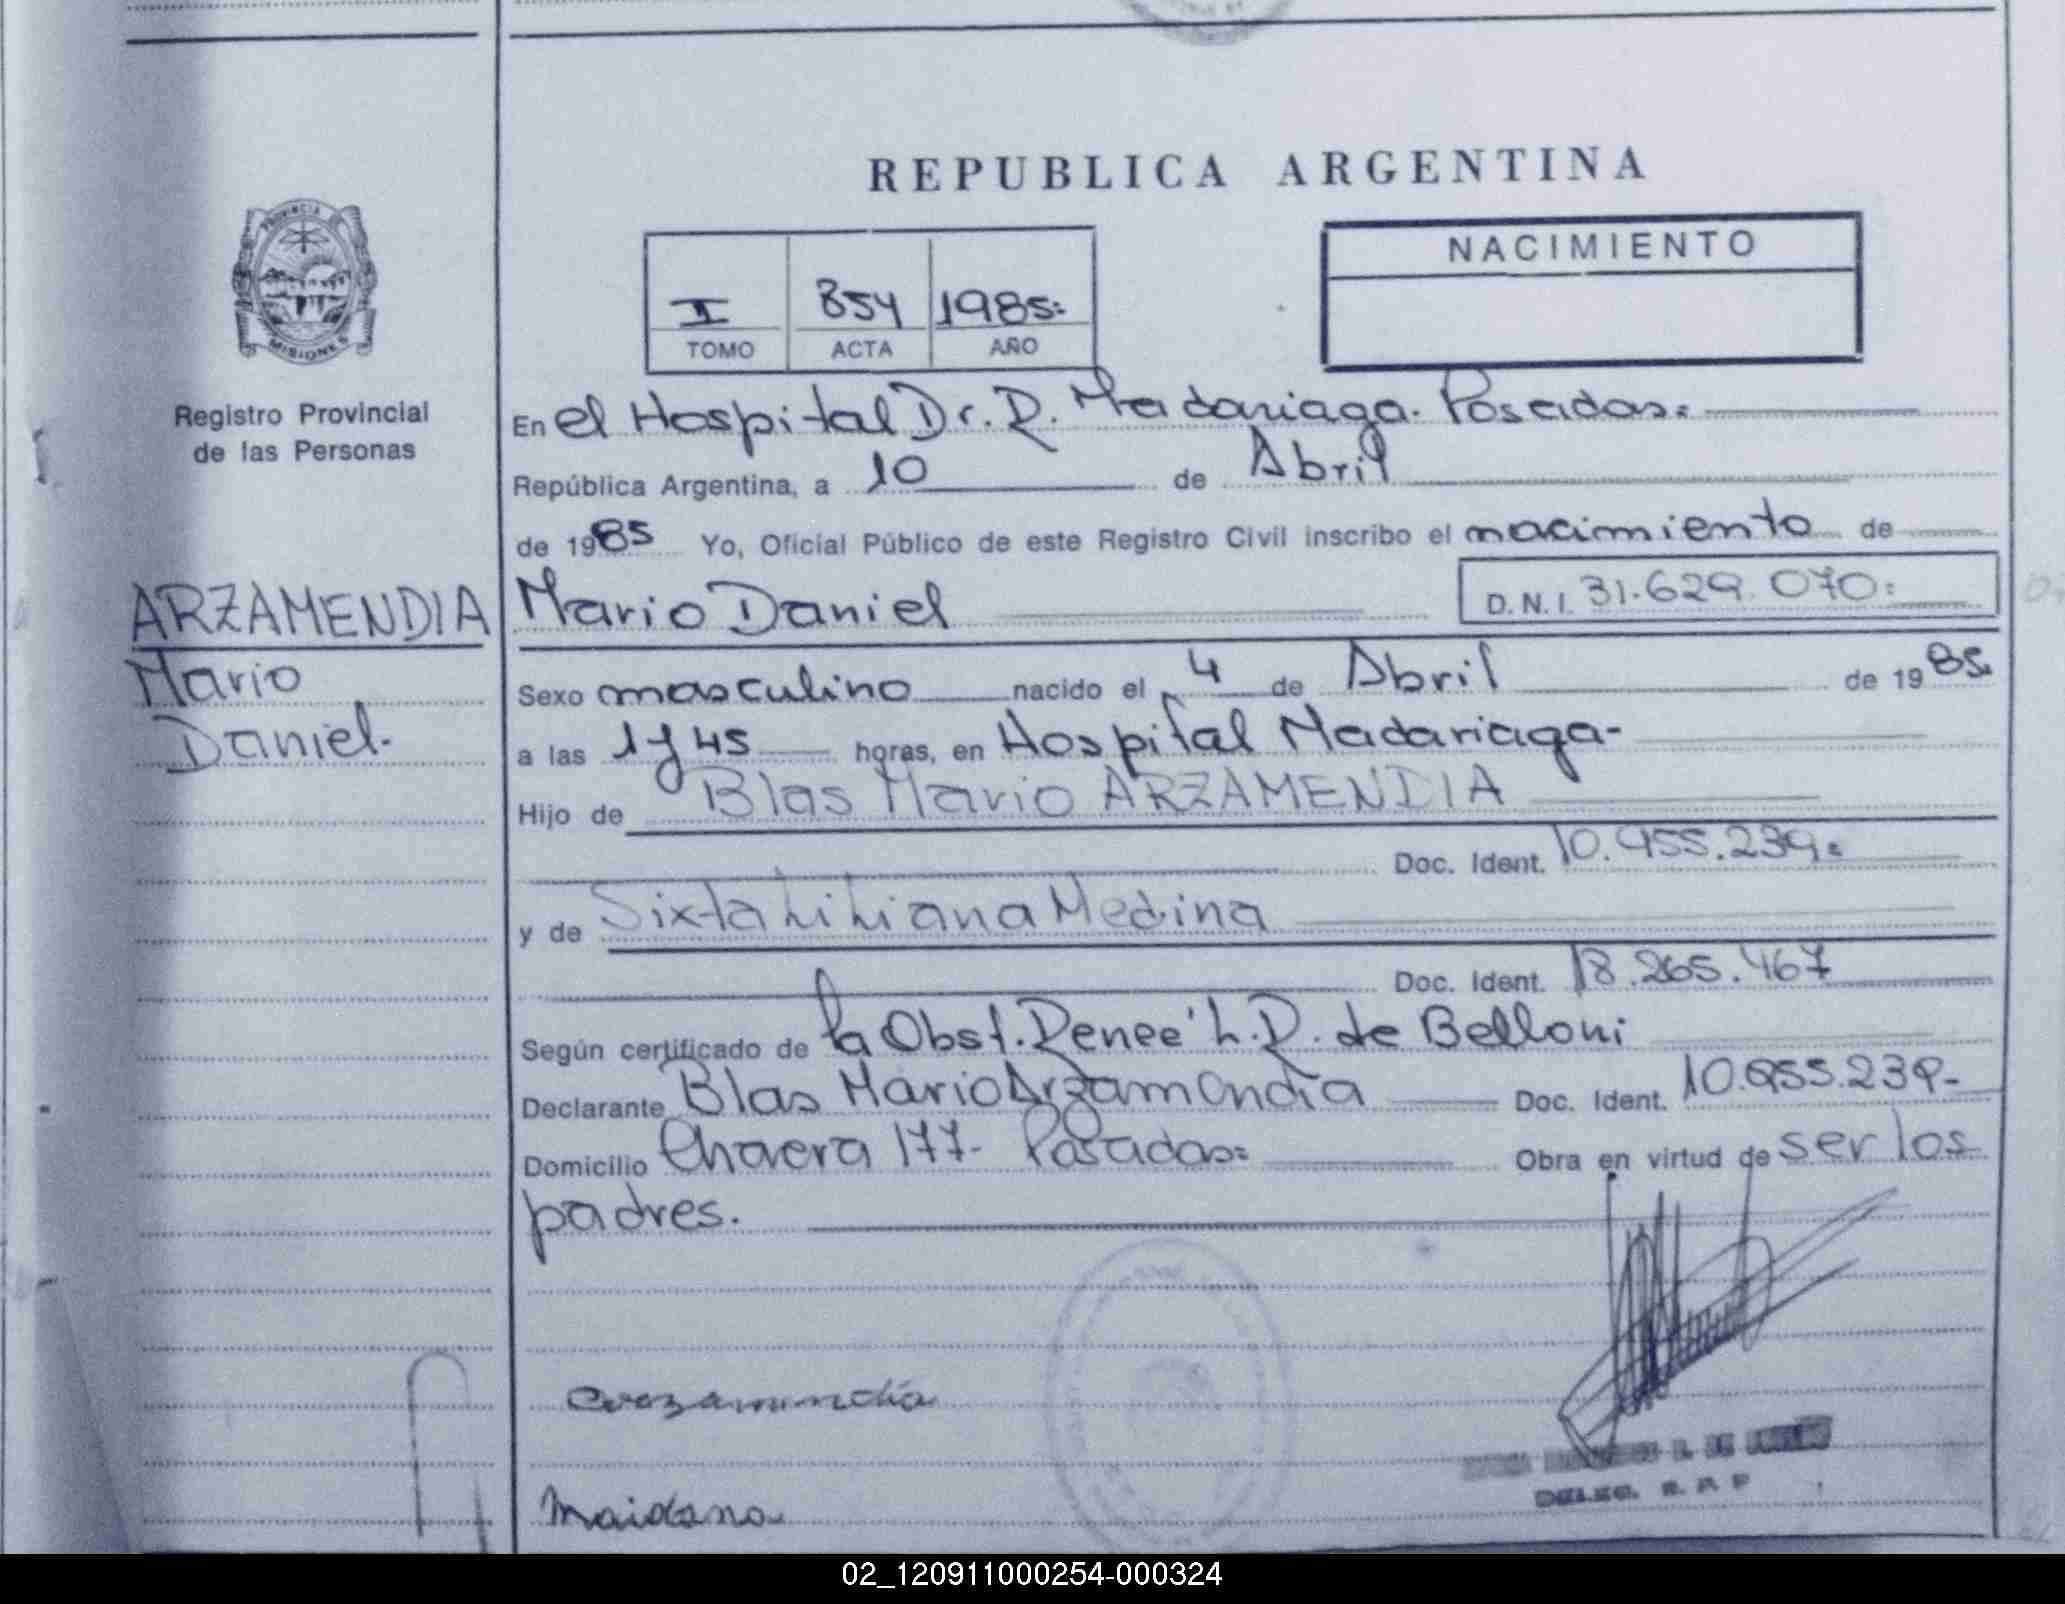 REPUBLICA ARGENTINA
PROVINCIA DE
MISIONES
Registro Provincial
de las Personas
I 854 1985=
TOMO ACTA AÑO
NACIMIENTO
En el Hospital Dr. R. Madariaga. Posadas=
República Argentina, a 10 de Abril
de 1985 Yo, Oficial Público de este Registro Civil inscribo el nacimiento de
ARZAMENDIA
Mario
Daniel.
Mario Daniel D.N.I. 31.629.070=
Sexo masculino nacido el 4 de Abril de 1985
a las 1 y 45 horas, en Hospital Madariaga-
Hijo de Blas Mario ARZAMENDIA
Doc. Ident. 10.955.239=
y de Sixta Liliana Medina
Doc. Ident. 18.265.467
Según certificado de la Obst. Renee' L. R. de Belloni
Declarante Blas Mario Arzamendia Doc. Ident. 10.955.239-
Domicilio 177- Posadas= Obra en virtud de ser los
padres.
DELEG. R. P. P
02_120911000254-000324